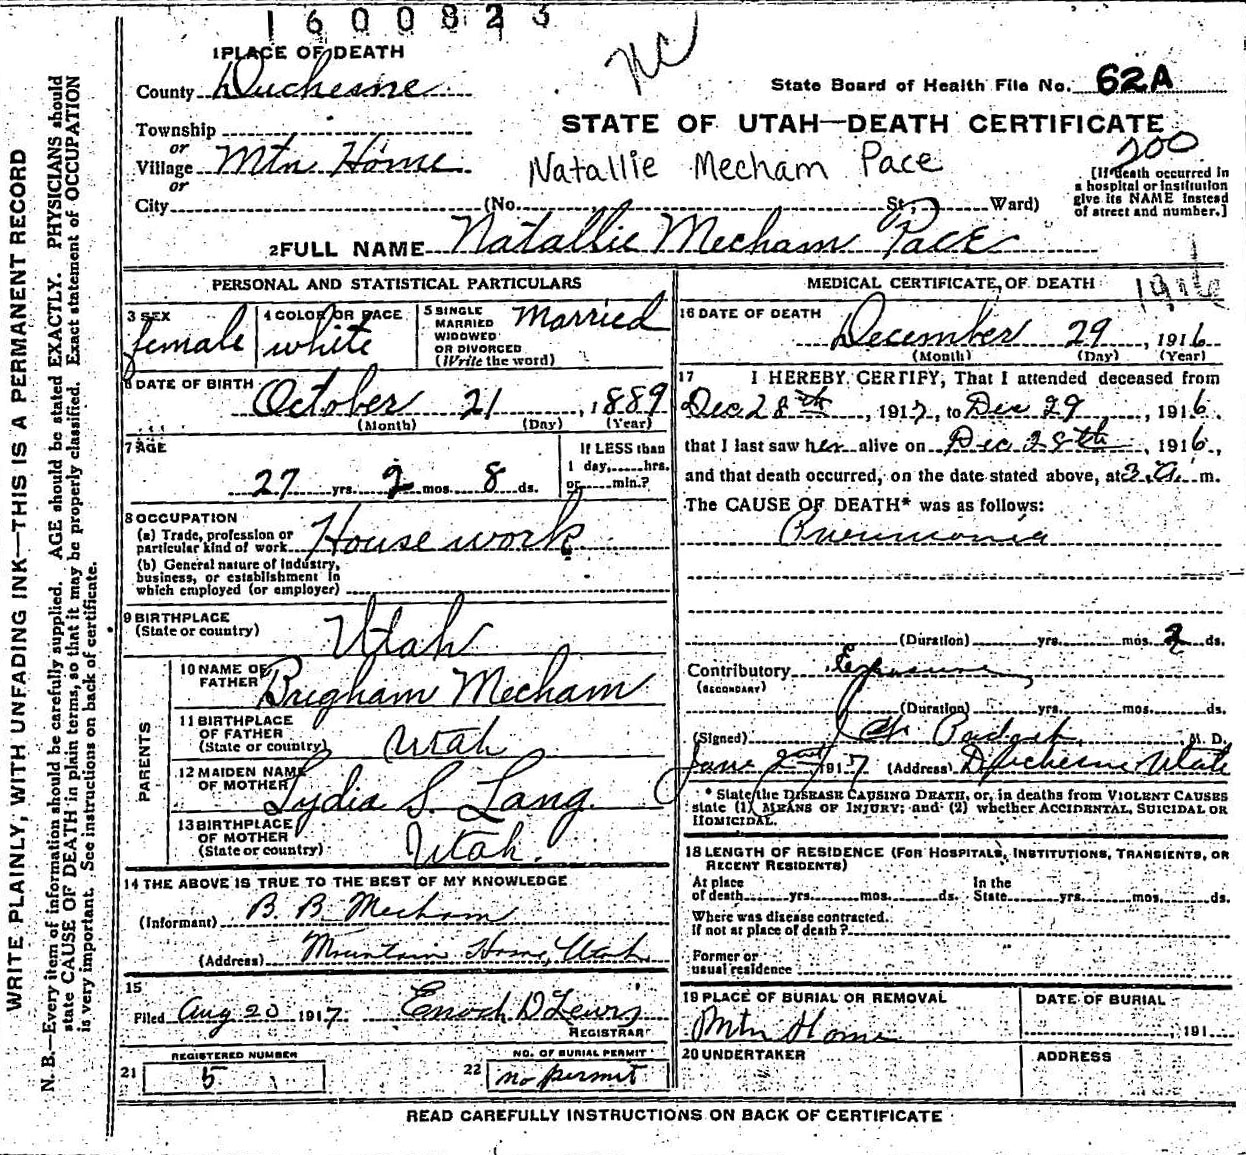 1600823
1 PLACE OF DEATH
County Duchesne
State Board of Health File No. 62A
Township
or
Village Mtn Home
or
City (No. St; Ward)
STATE OF UTAH—DEATH CERTIFICATE
Natallie Mecham Pace
200
[If death occurred in
a hospital or institution
give its NAME instead
of street and number.]
2 FULL NAME Natallie Mecham Pace
PERSONAL AND STATISTICAL PARTICULARS
3 SEX
female
4 COLOR OR RACE
white
5 SINGLE
MARRIED
WIDOWED
OR DIVORCED
(Write the word)
Married
6 DATE OF BIRTH
October 21, 1889
(Month) (Day) (Year)
7 AGE
27 yrs. 2 mos. 8 ds.
If LESS than
1 day, hrs.
or min.?
8 OCCUPATION
(a) Trade, profession or
particular kind of work House work
(b) General nature of industry,
business, or establishment in
which employed (or employer)
9 BIRTHPLACE
(State or country) Utah
PARENTS
10 NAME OF
FATHER Brigham Mecham
11 BIRTHPLACE
OF FATHER
(State or country) Utah
12 MAIDEN NAME
OF MOTHER Lydia S. Lang.
13 BIRTHPLACE
OF MOTHER
(State or country) Utah.
14 THE ABOVE IS TRUE TO THE BEST OF MY KNOWLEDGE
(Informant) B. B. Mecham
(Address) Mountain Home, Utah
15
Filed Aug 20 1917 Enoch D Lewis
REGISTRAR
REGISTERED NUMBER
21 5
NO. OF BURIAL PERMIT
22 no permit
MEDICAL CERTIFICATE OF DEATH
1916
16 DATE OF DEATH
December 29, 1916
(Month) (Day) (Year)
17 I HEREBY CERTIFY, That I attended deceased from
Dec 28th, 1917, to Dec 29, 1916.
that I last saw her alive on Dec 28th, 1916,
and that death occurred, on the date stated above, at 3. a. m.
The CAUSE OF DEATH* was as follows:
Pneumonia
(Duration) yrs. mos. 2 ds.
Contributory Exposure
(SECONDARY)
(Duration) yrs. mos. ds.
(Signed) M. D.
1917 (Address) Duchesne Utah
* State the DISEASE CAUSING DEATH, or, in deaths from VIOLENT CAUSES
state (1) MEANS OF INJURY; and (2) whether ACCIDENTAL, SUICIDAL OR
HOMICIDAL.
18 LENGTH OF RESIDENCE (FOR HOSPITALS, INSTITUTIONS, TRANSIENTS, OR
RECENT RESIDENTS)
At place
of death yrs. mos. ds.
In the
State yrs. mos. ds.
Where was disease contracted.
if not at place of death?
Former or
usual residence
19 PLACE OF BURIAL OR REMOVAL
Mtn Home
DATE OF BURIAL
191
20 UNDERTAKER
ADDRESS
READ CAREFULLY INSTRUCTIONS ON BACK OF CERTIFICATE
WRITE PLAINLY, WITH UNFADING INK—THIS IS A PERMANENT RECORD
N. B.—Every item of information should be carefully supplied. AGE should be stated EXACTLY. PHYSICIANS should
state CAUSE OF DEATH in plain terms, so that it may be properly classified. Exact statement of OCCUPATION
is very important. See instructions on back of certificate.